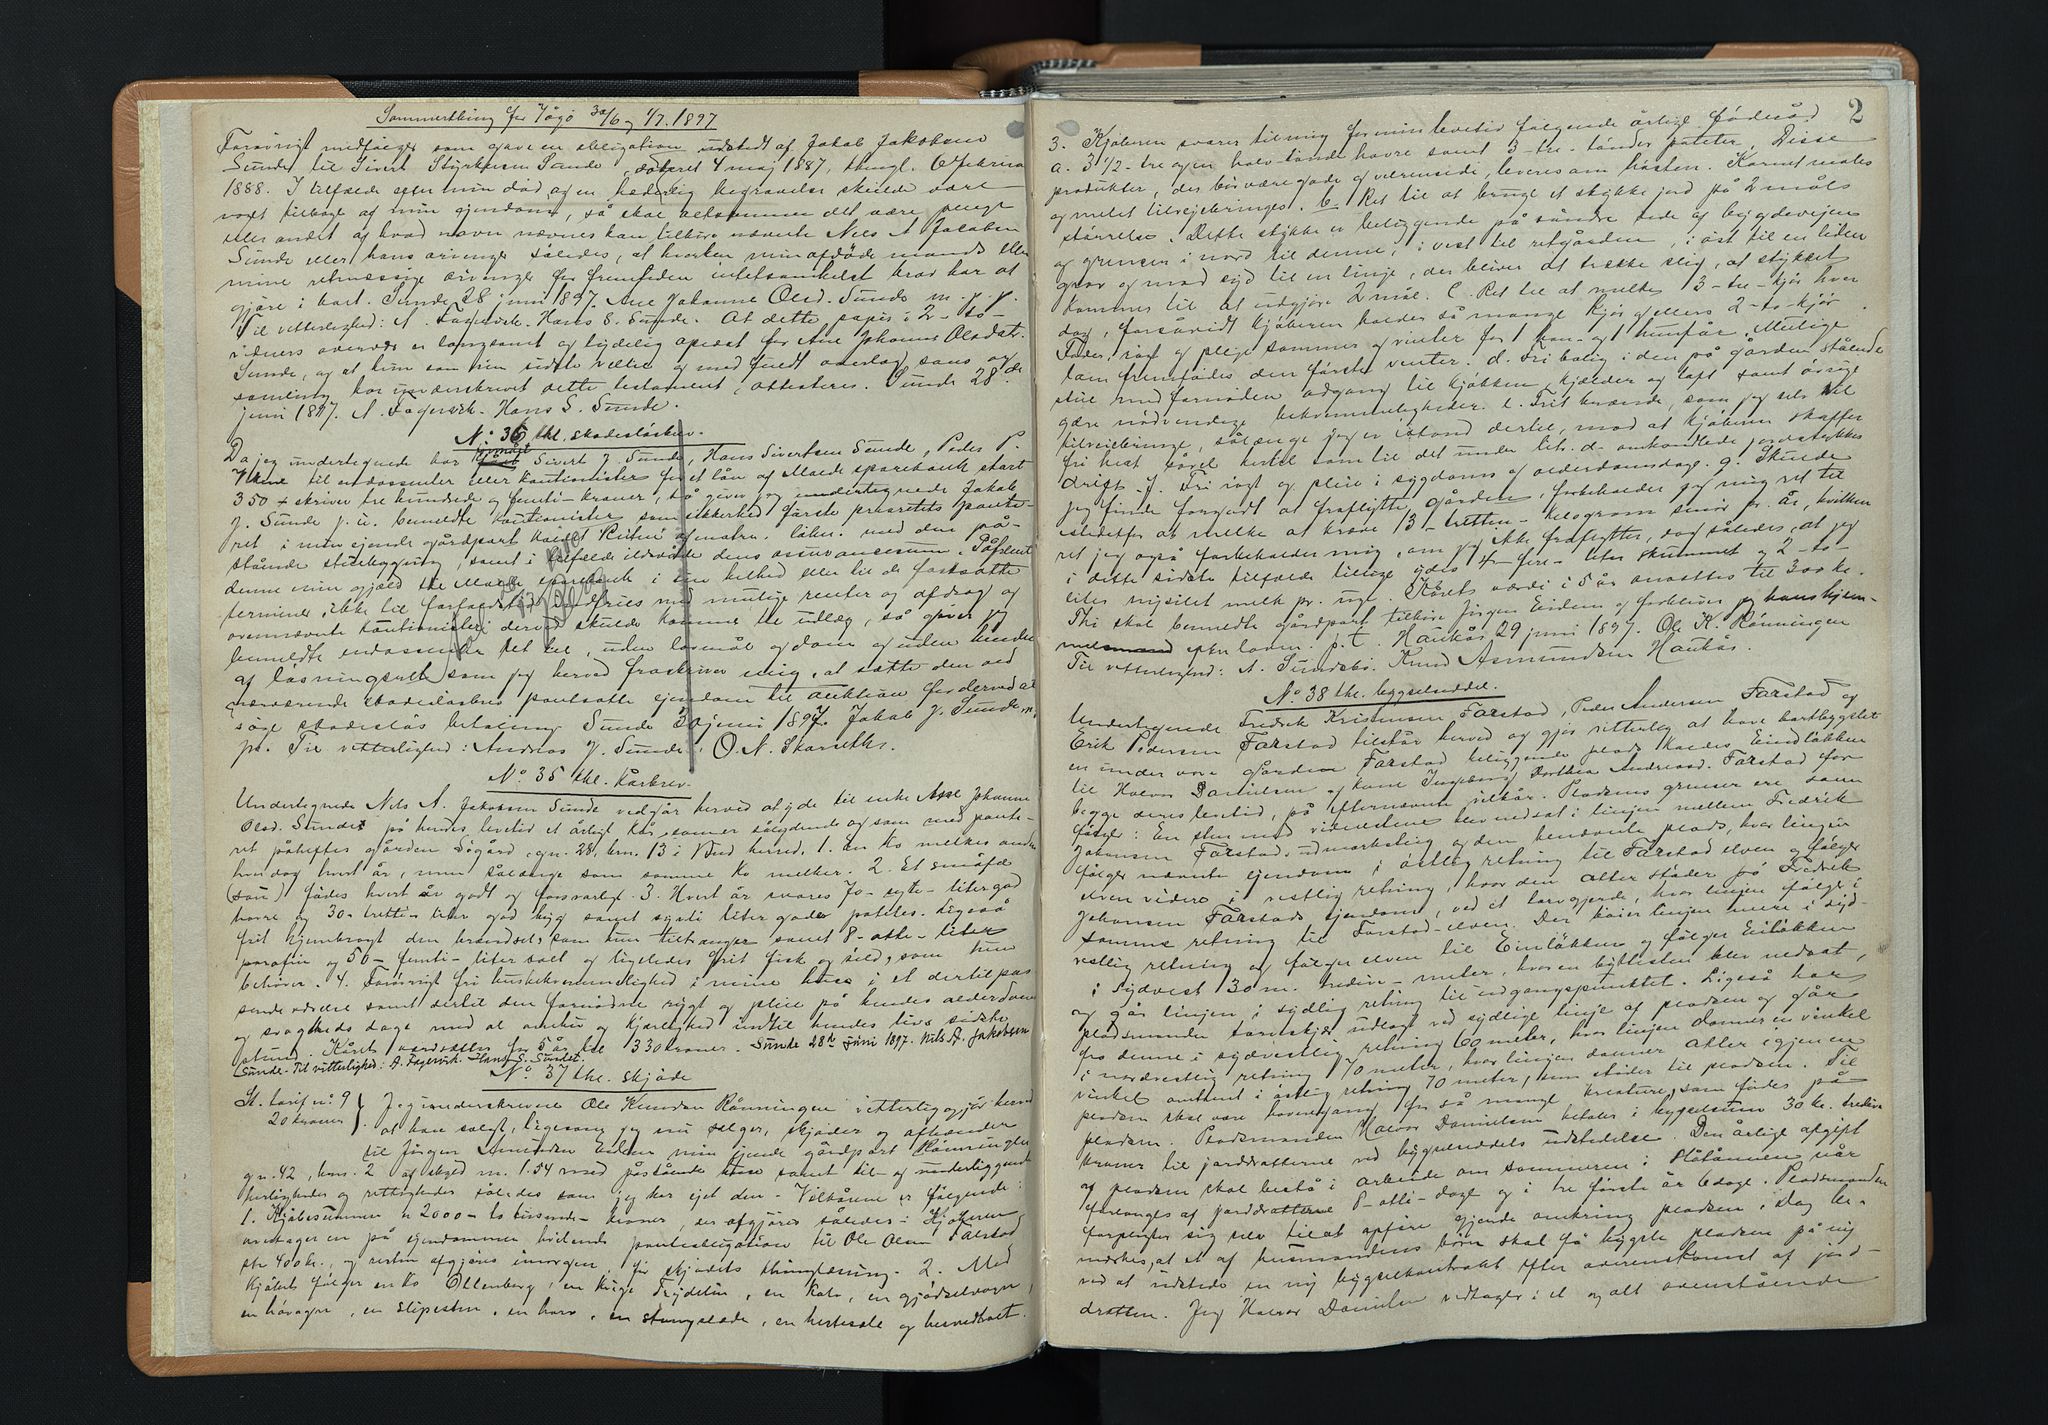 Sommerthing for Vågø 30/6 og 1/7. 1897
Forøvrigt medfølger som gave en obligation udstedt af Jakob Jakobsen
Sunde til Sivert Styrkersen Sunde dateret 4 maj 1887, thingl. 6 februar
1888. I tilfælde efter min død og en hæderlig begravelse skulde være
noget tilbage af min ejendom, så skal altsammen det være penge
eller andet af hvad navn nævnes kan tilhøre nævnte Nils A Jacobsen
Sunde eller hans arvinger således, at hverken min afdøde mands eller
mine retmæssige arvinger for fremtiden intetsomhelst krav har at
gjøre i bort. Sunde 28 juni 1897. Ane Johanne Olsd. Sunde m. p. p.
Til vitterlighed: A. Fagervik. Hans S. Sunde. At dette papir i 2 - to -
vidners overvær er langsomt og tydelig oplæst for Ane Johanne Olsdat.
Sunde, og at hun som sin sidste vilje og med fuldt overlag sans og
samling har underskrevet dette testament attesteres. Sunde 28 de
juni 1897. A. Fagervik. Hans S. Sunde.
No 36 thl. skadesløsbrev.
Da jeg undertegnede har formået Sivert J. Sunde, Hans Sivertsen Sunde, Peder P.
til endossenter eller kautionister for et lån af Molde sparebank stort
350 - skriver tre hundrede og femti - kroner, så giver jeg undertegnede Jakob
J. Sunde p. u. bemeldte kautionister som sikkerhed første prioritets pante-
ret i min ejende gårdpart kaldet og matr. løbn. med den på-
stående stuebygning, samt i tilfælde ildsvåde dens assurancesum. Påfaldt
denne min gjæld til Molde sparebank i sin helhed eller til de fastsatte
terminer ikke til forfaldstid indfries med mulige renter og afdrag og
ovennævnte kautionister derved skulde komme til udlæg, så giver jeg
bemeldte endossenter ret til, uden lovmål og dom og uden hinder
af løsningsret som jeg herved fraskriver mig, at sætte den ved
nærværende skadesløsbrev pantsatte ejendom til auktion for derved at
søge skadesløs betaling Sunde 30 juni 1897. Jakob J. Sunde m.
p. Til vitterlighed: Andreas J. Sunde. O. N. Skarseth.
No 35 thl. Kårbrev.
Undertegnede Nils A. Jakobsen Sunde vedgår herved at yde til enke Ane Johanne
Olsd. Sunde på hendes levetid et årligt kår, som er sålydende og som med pante-
ret påheftes gården Søgård, gn. 28, brn. 13 i Bud herred, 1. en ko melkes anden
hver dag hvert år, men sålænge som samme ko melker. 2. Et småfæ
(sau) fødes hvert år godt og forsvarligt. 3. Hvert år svares 70 - sytti - liter god
havre og 30 - tretti - liter god byg samt sytti liter gode poteter. Ligeså
frit hjembragt den brændsel, som hun tiltrænger samt 8 - otte - liter
parafin og 50 - femti - liter salt og ligeledes frit fisk og sild, som hun
behøver. 4. Forøvrigt fri husbekvemmelighed i mine huse i et dertil pas
sende værelse samt dertil den fornødne røgt og pleie på hendes alderdoms
og svagheds dage med al omhu og kjærlighed indtil hendes livs sidste
stund. Kårets værdsættes for 5 år til 330 kroner. Sunde 28de juni 1897. Nils A. Jakobsen
Sunde. Til vitterlighed: A. Fagervik. Hans S. Sunde.
No 37 thl. skjøde
St. tarif no 9 } Jeg underskrevne Ole Knudsen Rønningen vitterliggjør herved
20 kroner at have solgt, ligesom jeg nu sælger, skjøder og afhænder
til Jørgen Amundsen Eidem min ejende gårdpart Rønningen
gn. 42, brn. 2 af skyld m. 1.54 med påstående huse samt til- og underliggende
herligheder og rettigheder således som jeg har ejet den. Vilkårene er følgende:
1. Kjøbesummen er 2000 - to tusende - kroner, der afgjøres således: Kjøberen
overtager en på ejendommen heftende panteobligation til Ole Olsen Farstad
str. 400 kr., og resten afgjøres inmorgen, før skjødets thinglæsning. 2. Med
kjøbet følger en ko Ollenberg, en kvige Frydelin, en kalv, en gjødselvogn,
en høvogn, en slipesten, en harv, en stangslæde, en hestesæle og hesredskab.
2
3. Kjøberen svarer til mig for min levetid følgende årlige føderåd
a. 3 1/2 - tre og en halv - tønde havre samt 3 - tre - tønder poteter. Disse
produkter, der bør være gode og velrensede, leveres om høsten. Kornet males
og melet tilvejebringes. b. Ret til at bruge et stykke jord på 2 måls
størrelse. Dette stykke er beliggende på søndre side af bygdeveien
og grænser i nord til denne, i vest til retgården, i øst til en liden
grav og mod syd til en linje, der bliver at trække slig, at stykket
kommer til at udgjøre 2 mål. c. Ret til at melke 3 - tre - kjør hver
dag, forsåvidt kjøberen holder så mange kjør ellers 2 - to - kjør.
Foder, røgt og pleje sommer og vinter for 1 han- og 1 hunfår. Mulige
lam fremfødes den første vinter. d. Fri bolig i den på gården stående
stue med fornøden adgang til kjøkken, kjælder og loft samt øvrige
gøre nødvendige bekvemmeligheder. e. Frit brænde, som jeg selv vil
tilvejebringe, sålænge jeg er istand dertil, mod at kjøberen skaffer
fri hest såvel hertil som til det under litr. b. omhandlede jordstykkes
drift. f. Fri røgt og pleie i sygdoms og alderdomsdage. g. Skulde
jeg finde forgodt at fraflytte gården, forbeholder jeg mig ret til
istedetfor at melke at kræve 13 - tretten - kilogram smør pr. år, hvilken
ret jeg også forbeholder mig, om jeg ikke fraflytter, dog således, at jeg
i dette sidste tilfælde tillige ydes 4 - fire - liter skummet og 2 - to -
liter nysilet melk pr. uge. Kårets værdi i 5 år ansættes til 300 kr.
Thi skal bemeldte gårdpart tilhøre Jørgen Eidem og forbliver jeg hans hjem-
melsmand efter loven. p. t. Haukås 29 juni 1897. Ole K. Rønningen
Til vitterlighed: A. Sundsbø. Knud Asmundsen Haukås.
No 38 thl. bygselseddel.
Undertegnede Fredrik Kristensen Farstad, Peder Andersen Farstad og
Erik Pedersen Farstad tilstår herved og gjør vitterlig at have bortbygslet
en under vore gårdsn Farstad beliggende plads kaldes Eindløkken
til Halvor Danielsen og kone Ingeborg Dorthea Andreasd. Farstad for
begge deres levetid, på efternævnte vilkår. Pladsens grænser ere som
følger: En sten med vidnestene blev nedsat i linjen mellem Fredrik
Johansen Farstads udmarksteig og den benævnte plads, hvor linjen
følger nævnte ejendom i østlig retning til Farstad elven og følger
elven videre i vestlig retning, hvor den atter støder på Fredrik
Johansen Farstads ejendom, ved et torvgjerde, hvor linjen følger i
samme retning til Farstad-elven. Der bøier linjen mere i syd-
vestlig retning og følger elven til Einløkken og følger Einløkken
i sydvest 30 m. tredive meter, hvor en byttesten blev nedsat,
og går linjen i sydlig retning til udgangspunktet. Ligeså har
pladsmanden torvskjær udlagt ved sydlige linje af pladsen og går
fra denne i sydvestlig retning 60 meter, hvor linjen danner en vinkel
i nordvestlig retning 70 meter, hvor linjen danner atter igjen en
vinkel omtrent i østlig retning 70 meter, som støder til pladsen. Til
pladsen skal være havnegang for så mange kreature, som fødes på
pladsen. Pladsmanden Halvor Danielsen betaler i bygselsum 30 kr. tredive
kroner til jorddrotterne ved bygselseddels udstedelse. Den årlige afgift
af pladsen skal bestå i arbeide om sommeren i slåtånnen når
forlanges af jorddrotterne 8 - otte - dage og i tre første år 6 dage. Pladsmanden
forpligter sig selv til at opføre gjerde omkring pladsen. Dog be-
mærkes, at et af husmandens børn skal få bygsle pladsen på ny
ved at udstede en ny bygselkontrakt efter overenskomst af jord-
drotten. Jeg Halvor Danielsen vedtager i et og alt ovenstående